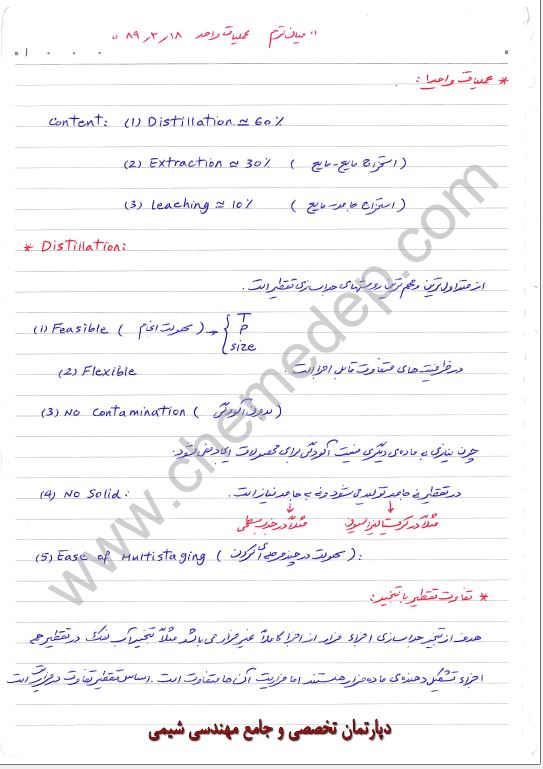 "میان ترم عملیات واحد ۸۹/۲/۱۸"
* عملیات واحد ۱:
Content: (1) Distillation ≈ 60%
(2) Extraction ≈ 30% (استخراج مایع-مایع)
(3) Leaching ≈ 10% (استخراج جامد-مایع)
* Distillation:
از متداول ترین و مهم ترین روشهای جداسازی تقطیر است.
(1) Feasible (سهولت انجام) → { T
P
size
(2) Flexible در ظرفیت های متفاوت قابل اجرا است.
(3) No Contamination (بدون آلودگی)
چون نیازی به ماده ی دیگری نیست آلودگی برای محصولات ایجاد نمی شود.
(4) No Solid: در تقطیر نه جامد تولید می شود و نه به جامد نیاز است.
مثلاً در کریستالیزاسیون مثلاً در جذب سطحی
(5) Ease of Multistaging (سهولت در چند مرحله ای کردن):
* تفاوت تقطیر با تبخیر:
هدف از تبخیر جداسازی اجزاء فرار از اجزا کاملاً غیر فرار می باشد مثلاً تبخیر آب نمک. در تقطیر همه
اجزاء تشکیل دهنده ی ماده فرار هستند اما فراریت آن ها متفاوت است. اساس تقطیر تفاوت در فراریت است
www.chemedep.com
دپارتمان تخصصی و جامع مهندسی شیمی